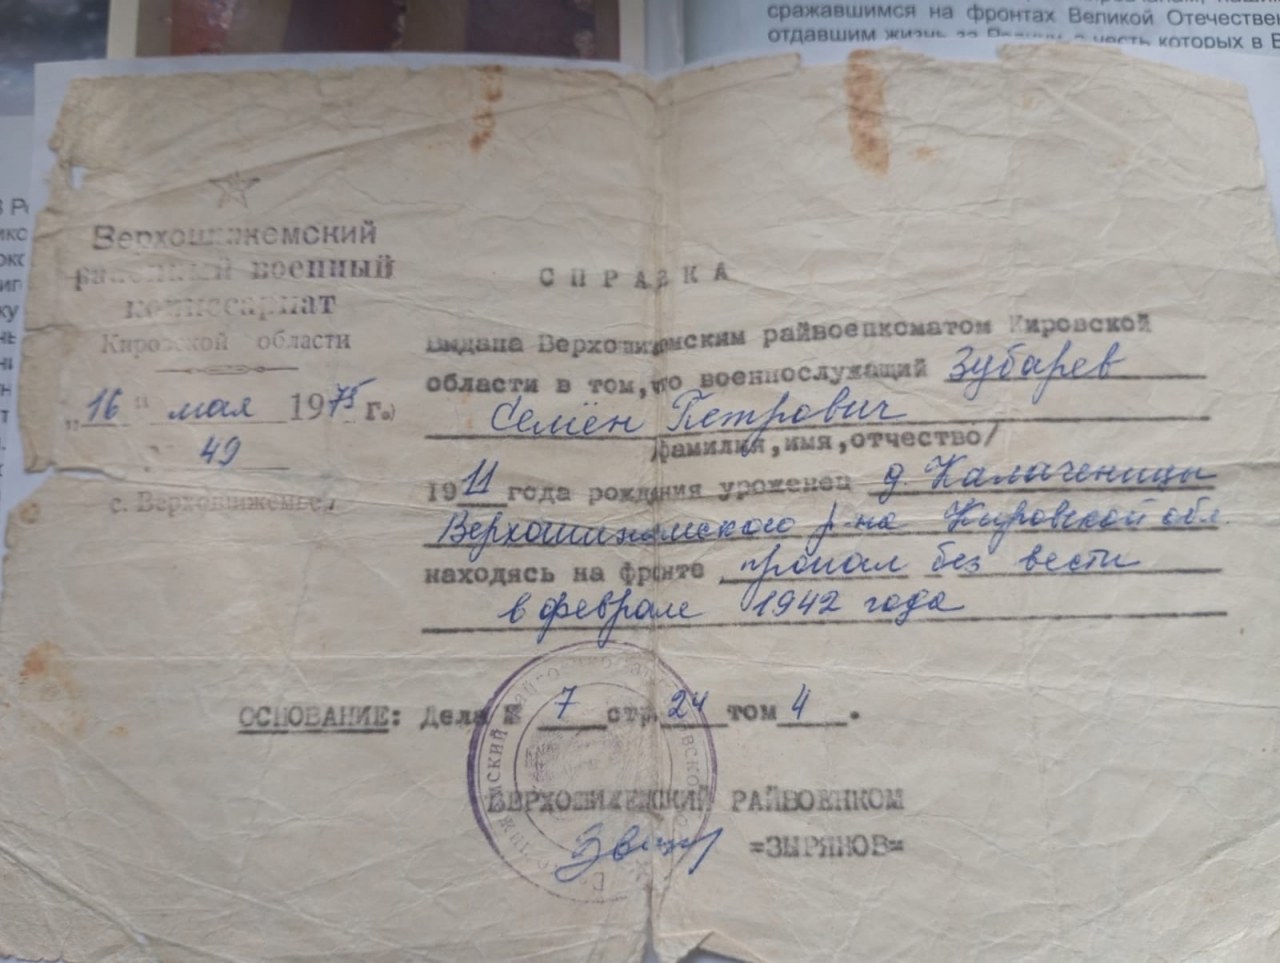 сражавшимся на фронтах Великой Отечествен
отдавшим жизнь за Родину, в честь которых в
Верхошижемский
районный военный
комиссариат
Кировской области
„16" мая 1975 г.
49
с. Верхошижемье
СПРАВКА
выдана Верхошижемским райвоенкоматом Кировской
области в том, что военнослужащий Зубарев
Семён Петрович
/фамилия, имя, отчество/
1911 года рождения уроженец д Калаченицы
Верхошижемского р-на Кировской обл.
находясь на фронте пропал без вести
в феврале 1942 года
ОСНОВАНИЕ: Дела № 7 стр. 24 том 4.
ВЕРХОШИЖЕМСКИЙ РАЙВОЕНКОМ
=ЗЫРЯНОВ=